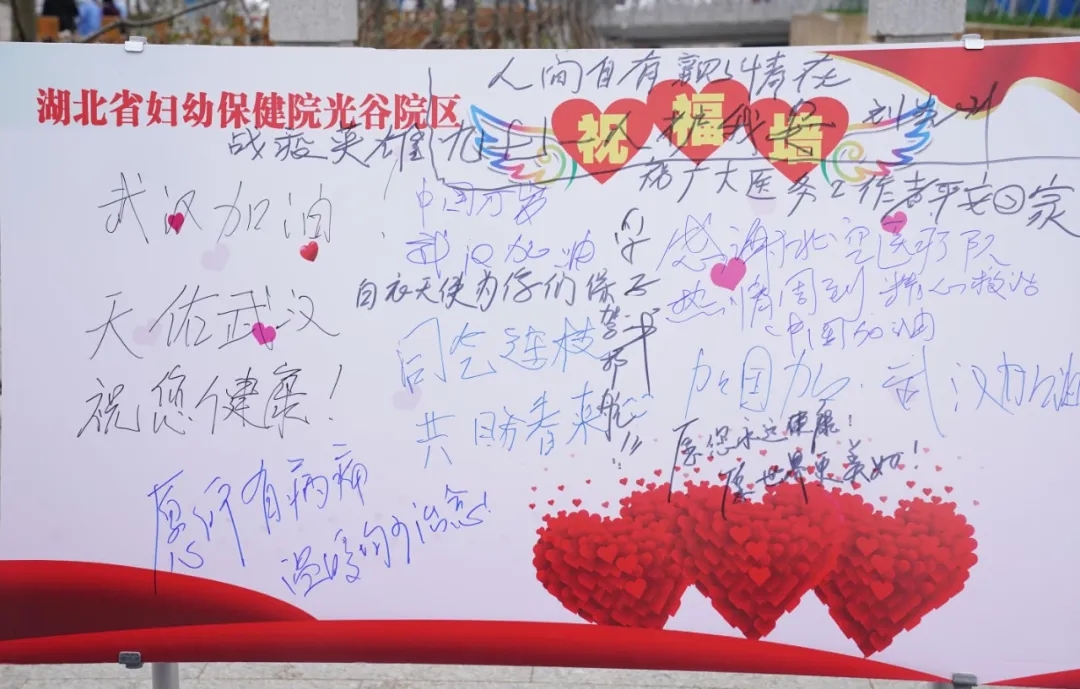 湖北省妇幼保健院光谷院区
祝福墙
人间自有真情在
战疫英雄
祝广大医务工作者平安回家
武汉加油！
中国加油
武汉加油
感谢北空医疗队
热情周到 精心救治
中国加油
天佑武汉
祝您健康！
白衣天使为你们保驾护航!!!
同气连枝
共盼春来
武汉加油
愿您永远健康！
愿世界更美好！
愿所有病痛
温暖的治愈！